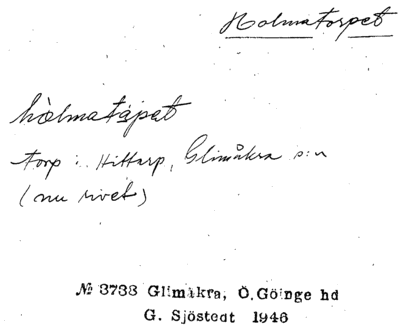 Holmatorpet
hòlmatåpet
torp i Hittarp, Glimåkra s:n
(nu rivet)
№ 3733 Glimåkra, Ö.Göinge hd
G. Sjöstedt 1946